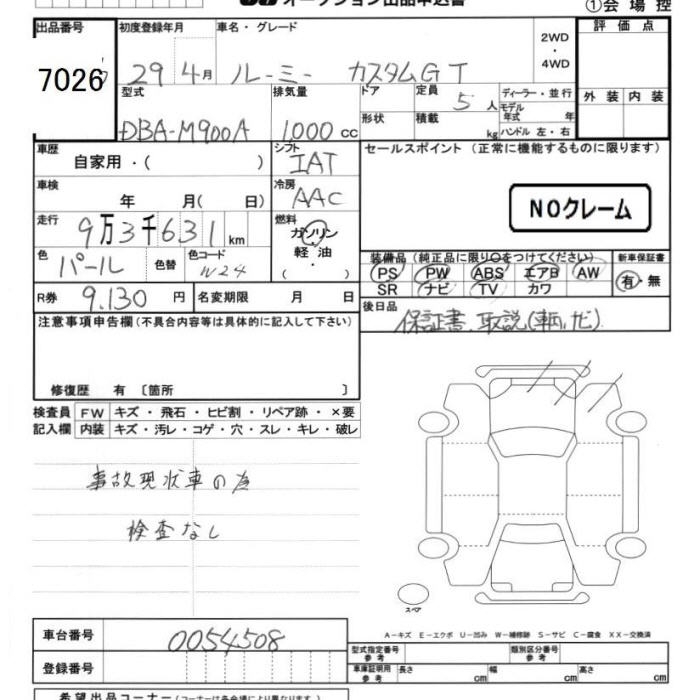 オークション出品申込書 ①会場控
出品番号 初度登録年月 車名・グレード 2WD・4WD 評価点
7026 29 4月 ルーミー カスタムGT
型式 排気量 ドア 定員 5人 ディーラー・並行 外装 内装
DBA-M900A 1000cc 形状 積載 kg モデル年式 年 ハンドル 左・右
車歴 自家用・( ) シフト IAT セールスポイント(正常に機能するものに限ります)
車検 年 月( 日) 冷房 AAC NOクレーム
走行 9万3千631km 燃料 ガソリン・軽油・( )
色 パール 色替 色コード W24
装備品(純正品に限り○をつけてください) 新車保証書
PS PW ABS エアB AW 有・無
SR ナビ TV カワ
R券 9.130円 名変期限 月 日 後日品 保証書、取説(車両、ナビ)
注意事項申告欄(不具合内容等は具体的に記入して下さい)
修復歴 有〔箇所 〕
検査員 FW キズ・飛石・ヒビ割・リペア跡・×要
記入欄 内装 キズ・汚レ・コゲ・穴・スレ・キレ・破レ
事故現状車の為
検査なし
スペア
A-キズ E-エクボ U-凹み W-補修跡 S-サビ C-腐食 XX-交換済
車台番号 0054508 型式指定番号 参考 類別区分番号 参考
登録番号 車庫証明用 参考 長さ cm 幅 cm 高さ cm
希望出品コーナー(コーナーは各会場により異なります)